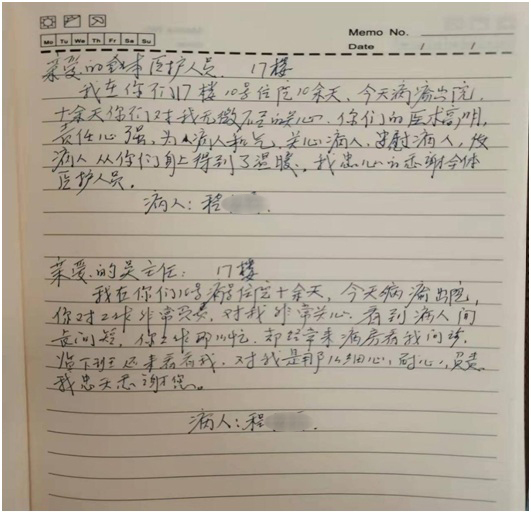 Memo No.
Mo Tu We Th Fr Sa Su
Date / /
亲爱的全体医护人员: 17楼
我在你们17楼10号住院10余天,今天病痊出院,
十余天你们对我无微不至的关心,你们的医术高明,
责任心强,为病人和气,关心病人,安慰病人,使
病人从你们身上得到了温暖。我忠心的感谢全体
医护人员。
病人:程
亲爱的吴主任: 17楼
我在你们10号病号住院十余天,今天病痊出院,
你对工作非常负责,对我非常关心,看到病人问
长问短,你工作那么忙,却经常来病房看我问好,
临下班还来看看我,对我是那么细心,耐心,负责
我忠天感谢您。
病人:程